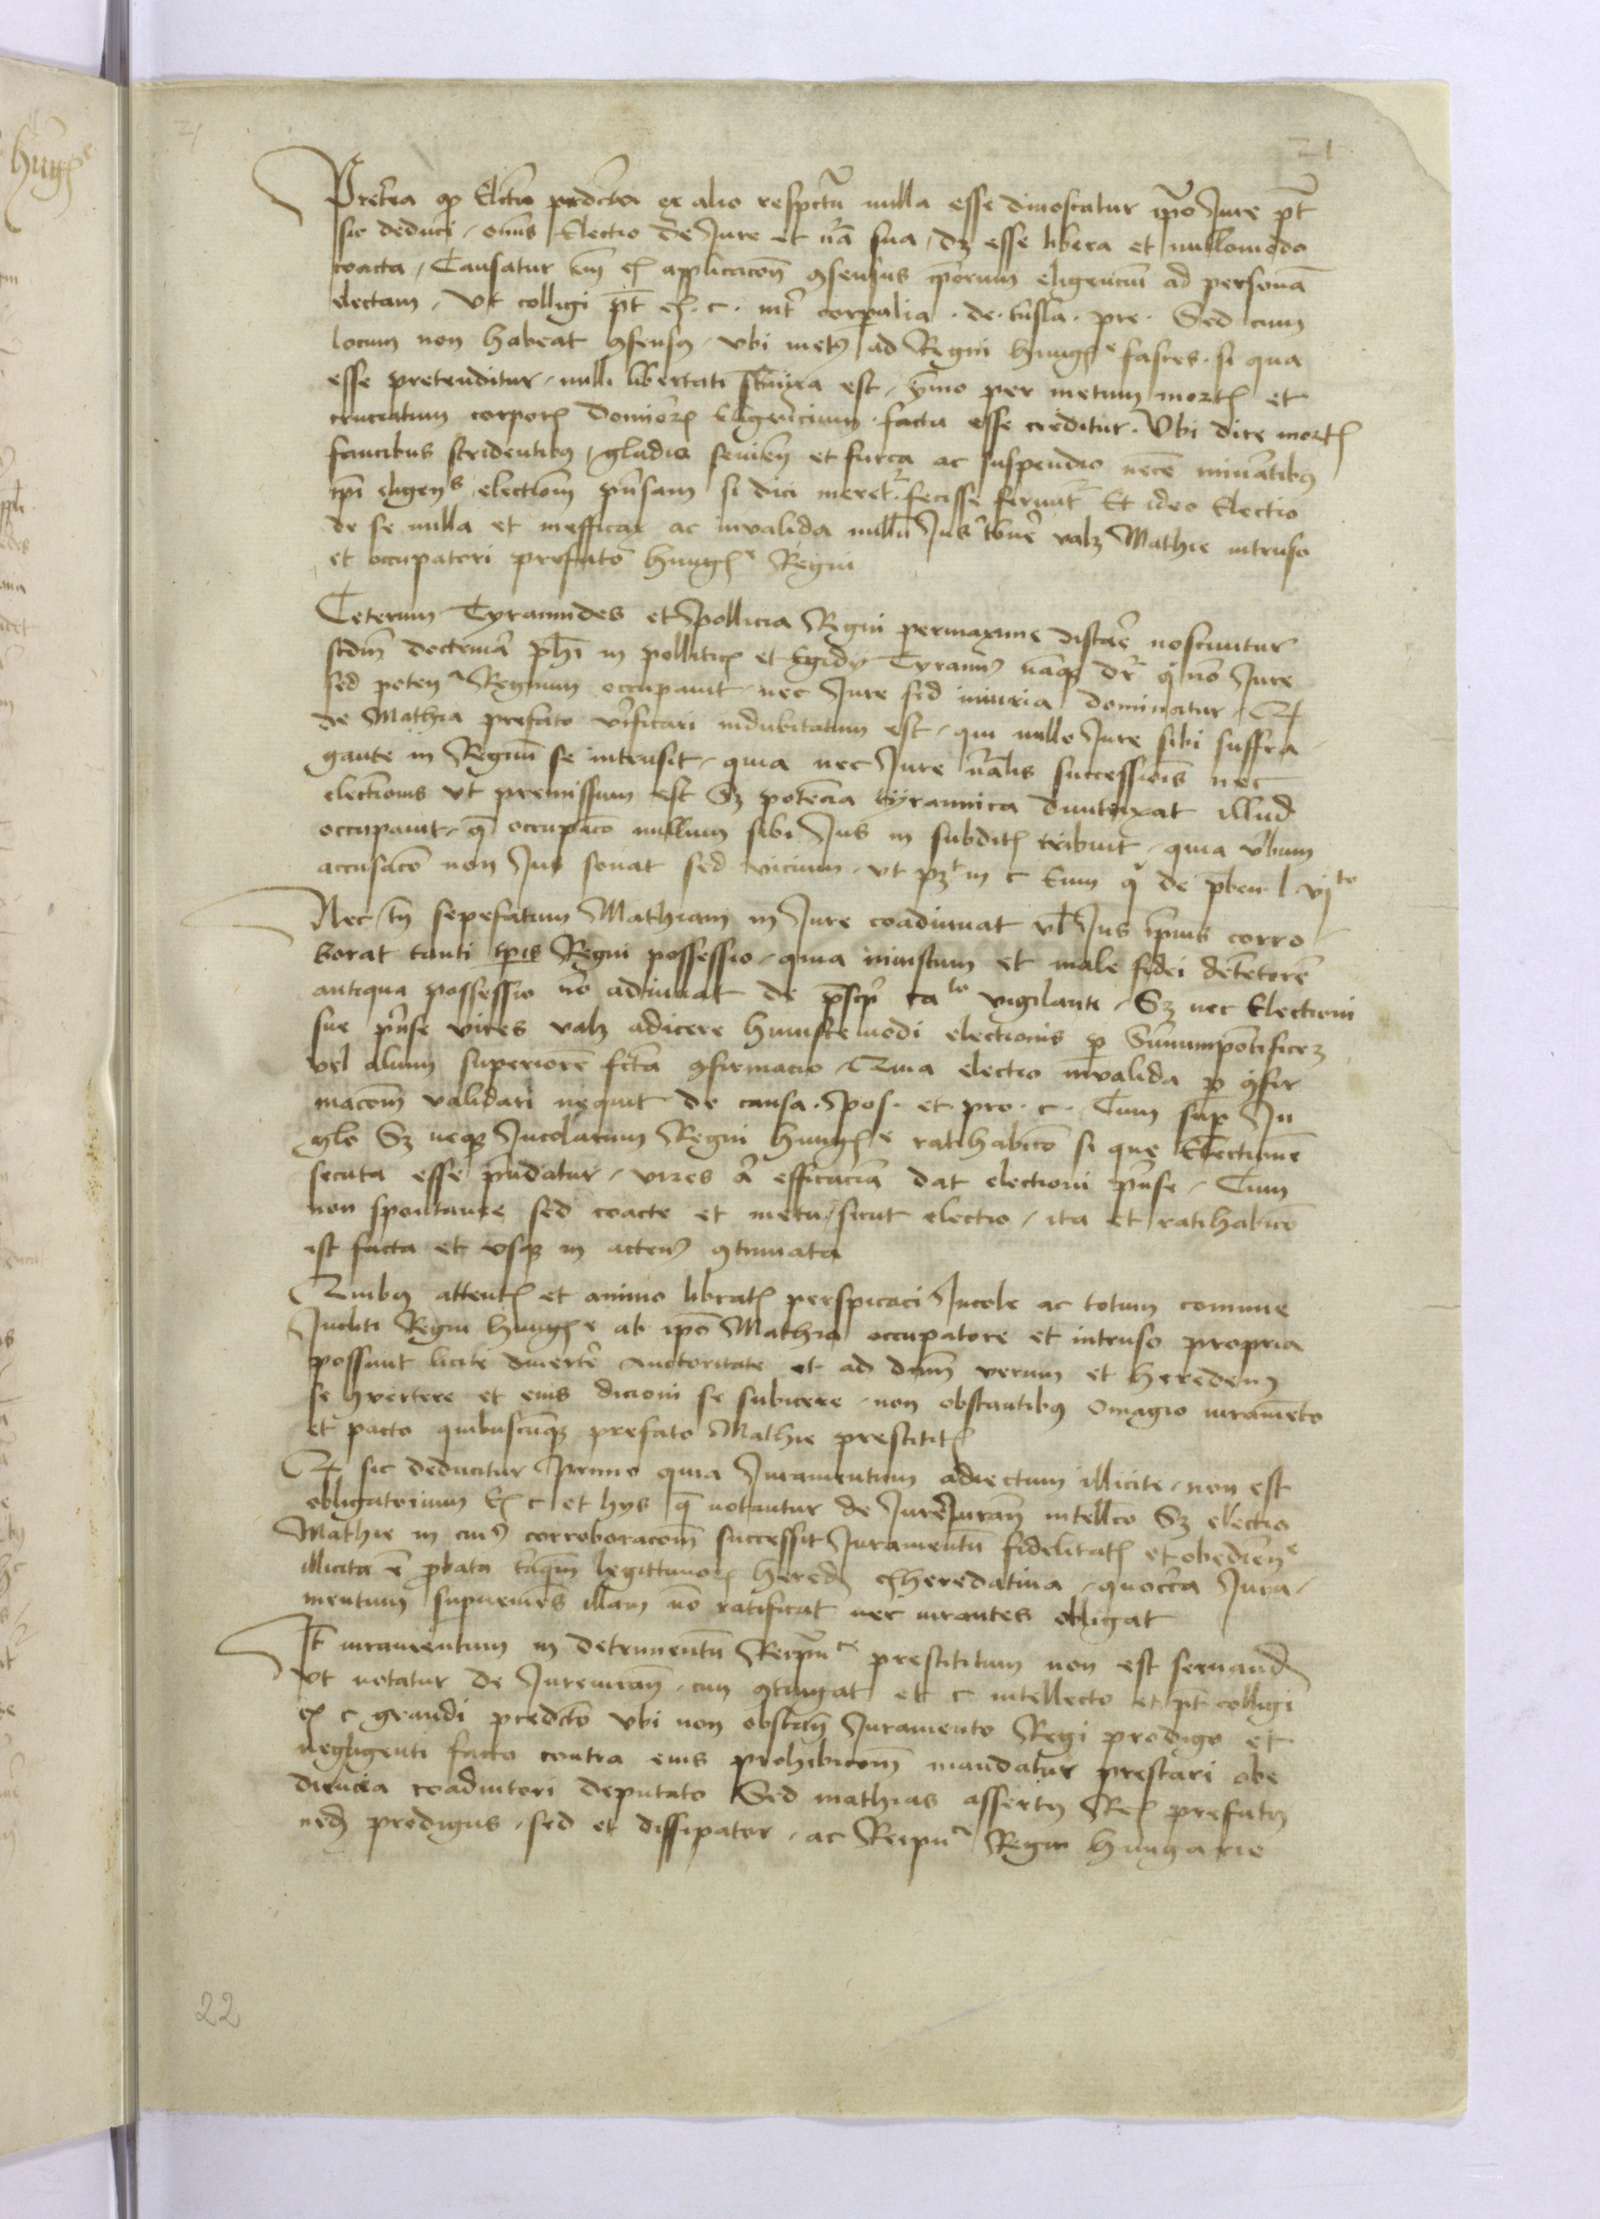 21
Preterea qz Electio predicta ex alio respectu nulla esse dinoscatur ipso Jure pt
sic deduci, omnis Electio de Jure et nra sua, dz esse libera et nullomodo
coacta, Causatur em ex applicacone consensus ipsorum eligenciu ad persona
electam, vt colligi pt ex c. inter corporalia. de. transla. pre. Sed cum
locum non habeat consensus, vbi metus ad Regni hungarie fasces, si qua
esse pretenditur, nulli libertati est, ymo per metum mortis et
cruciatum corporis dominorum Eligencium facta esse creditur. Vbi dire mortis
faucibus stridentibus, gladio et furca ac suspendio necem minantibus
ipi eligentes electionem pnsam si dici meretur fecisse feruntur Et ideo Electio
de se nulla et inefficax ac invalida nullu Jus valz Mathie intruso
et occupatori prefato hungarie Regni
Ceterum Tyrannides et pollicia Regni permaxime distare noscuntur
scdm doctrina phi in polliticis et Egidii Tyrannus namqz dr q no Jure
sed poten Regnum occupauit, nec Jure sed iniuria dominatur, Qz
de Mathia prefato verificari indubitatum est, qui nullo Jure sibi suffra
gante in Regnu se intrusit, quia nec Jure nralis successionis nec
electionis vt premissum est Sz potencia tyrannica duntaxat illud
occupauit, q occupaco nullum sibi Jus in subditis tribuit, quia verbum
accusaco non Jus sonat sed vicium, vt pzt in c Cum q de preben l vjto
Nec tn sepefatum Mathiam in Jure coadiuuat vl Jus ipius corro
borat tanti tpis Regni possessio, quia iniustum et male fidei detentorem
antiqua possessio no adiuuat de prescr ca to vigilanti, Sz nec Electioni
sue pnse vires valz adicere huiuscemodi electionis p Summumpontificez
vel alium superiorem fcta confirmacio, Quia electio invalida p confir
macom validari nequit de causa. pos. et. pro. c. Cum sup In
glo Sz neqz Incolarum Regni hungarie ratihabico si que Electionem
secuta esse pretendatur, vires a efficaciam dat electioni pnse, Cum
non spontanee sed coacte et metu, sicut electio, ita et ratihabico
est facta et vsqz in actenus continuata
Quibus attentis et animo libratis perspicaci Incole ac totum comune
Incliti Regni hungarie ab ipo Mathia occupatore et intruso propria
possunt licite diuertere auctoritate et ad dnm verum et heredem
se conuertere et eius dicioni se subicere, non obstantibus omagio iuramento
et pacto quibuscunqz prefato Mathie prestititis
Qz sic deducitur primo quia Juramentum adiectum illicite, non est
obligatorium Ex c et hys q notantur de Jureiuran intellco Sz electio
Mathie in cuius corroboracom successit Juramentu fidelitatis et obedience
illicita e probata tanqm legittimorum heredum exheredatiua, quocirca Jura
mentum superueniens illam no ratificat nec iurantes obligat
Jt iuramentum in detrimentu Reipuce prestititum non est seruand
vt notatur de Jureiuran, cum contingat et c intellecto et pt colligi
ex c grandi predicto vbi non obstan Juramento Regi prodigo et
negligenti facto contra eius prohibicom mandatur prestari obe
diencia coadiutori deputato Sed mathias assertus Rex prefatus
nedum prodigus, sed et dissipator, ac Reipuce Regni hungarie
22